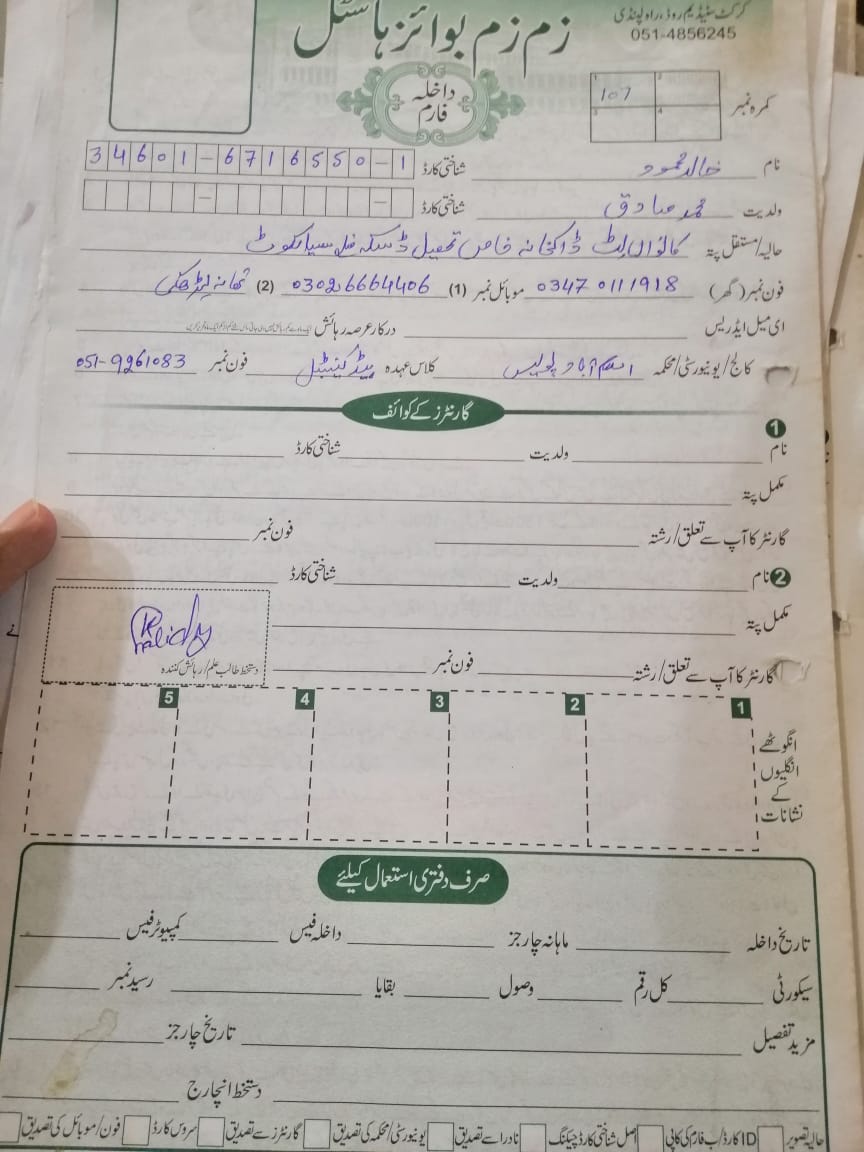 کرکٹ سٹیڈیم روڈ، راولپنڈی
051-4856245
زم زم بوائز ہاسٹل
داخلہ فارم
کمرہ نمبر 1 107 2 3 4
نام خالد محمود شناختی کارڈ 34601-6716550-1
ولدیت محمد صادق شناختی کارڈ
حالیہ/مستقل پتہ ڈاکخانہ خاص تحصیل ڈسکہ ضلع سیالکوٹ
فون نمبر (گھر) 0347 0111918 موبائل نمبر (1) 03026664406 (2) تھانہ
ای میل ایڈریس درکار عرصہ رہائش
کالج/یونیورسٹی/محکمہ اسلام آباد پولیس کلاس عہدہ ہیڈ کنسٹیبل فون نمبر 051-9261083
گارنٹرز کے کوائف
1 نام ولدیت شناختی کارڈ
مکمل پتہ
گارنٹر کا آپ سے تعلق/رشتہ فون نمبر
2 نام ولدیت شناختی کارڈ
مکمل پتہ
گارنٹر کا آپ سے تعلق/رشتہ فون نمبر
دستخط طالب علم/رہائش کنندہ
انگوٹھے انگلیوں کے نشانات 1 2 3 4 5
صرف دفتری استعمال کیلئے
تاریخ داخلہ ماہانہ چارجز داخلہ فیس کمپیوٹر فیس
سیکورٹی کل رقم وصول بقایا رسید نمبر
مزید تفصیل تاریخ چارجز
دستخط انچارج
حالیہ تصویر ID کارڈ/ب فارم کی کاپی اصل شناختی کارڈ چیکنگ نادرا سے تصدیق یونیورسٹی/محکمہ کی تصدیق گارنٹرز سے تصدیق سروس کارڈ فون/موبائل کی تصدیق